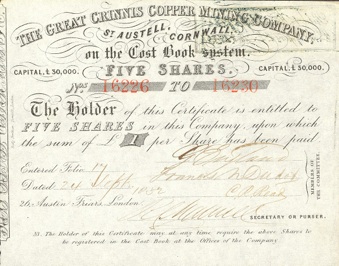 THE GREAT CRINNIS COPPER MINING COMPANY,
ST AUSTELL, CORNWALL,
on the Cost Book system.
CAPITAL, £ 50,000.
FIVE SHARES.
CAPITAL, £ 50,000.
Nos 16226 TO 16230
The Holder of this Certificate is entitled to
FIVE SHARES in this Company, upon which
the sum of £1 per Share has been paid
Entered Folio 17
Dated 24 Sept 1852
26, Austin Friars, London.
MEMBERS OF THE COMMITTEE
SECRETARY OR PURSER.
The Holder of this Certificate may at any time require the above Shares to
be registered in the Cost Book at the Offices of the Company